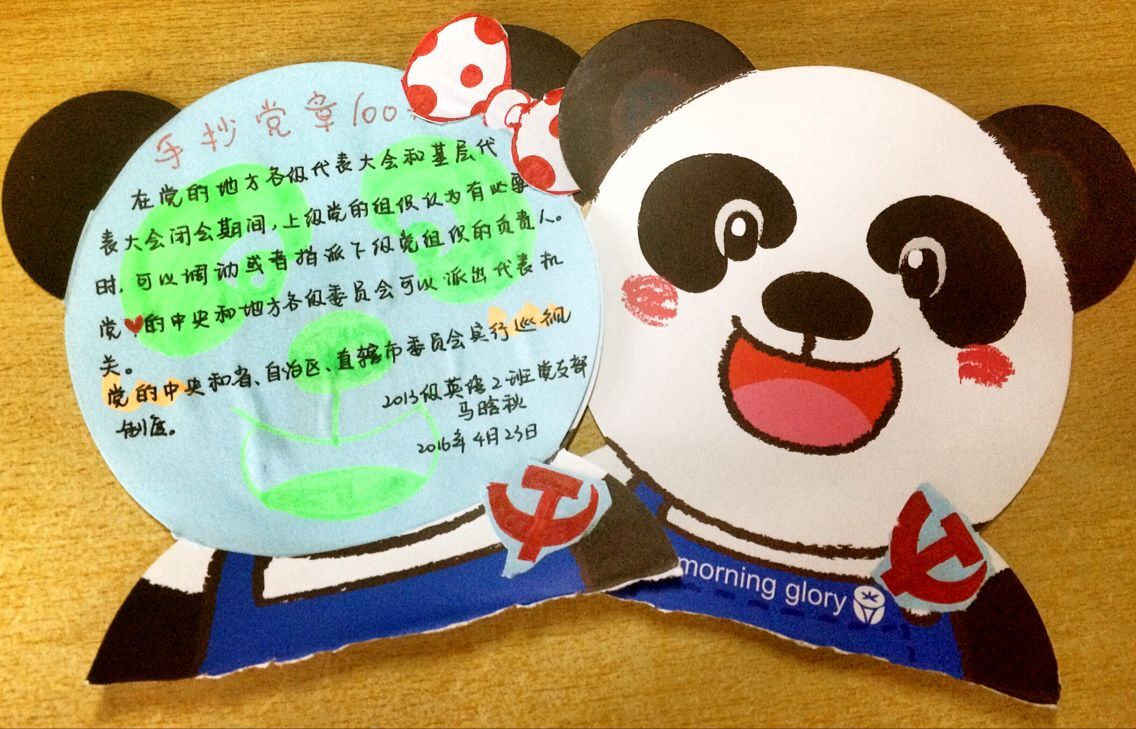 手抄党章100
在党的地方各级代表大会和基层代
表大会闭会期间,上级党的组织认为有必要
时,可以调动或者指派下级党组织的负责人。
党的中央和地方各级委员会可以派出代表机
关。
党的中央和省、自治区、直辖市委员会实行巡视
制度。
2013级英语2班党支部
马晗秋
2016年4月23日
morning glory